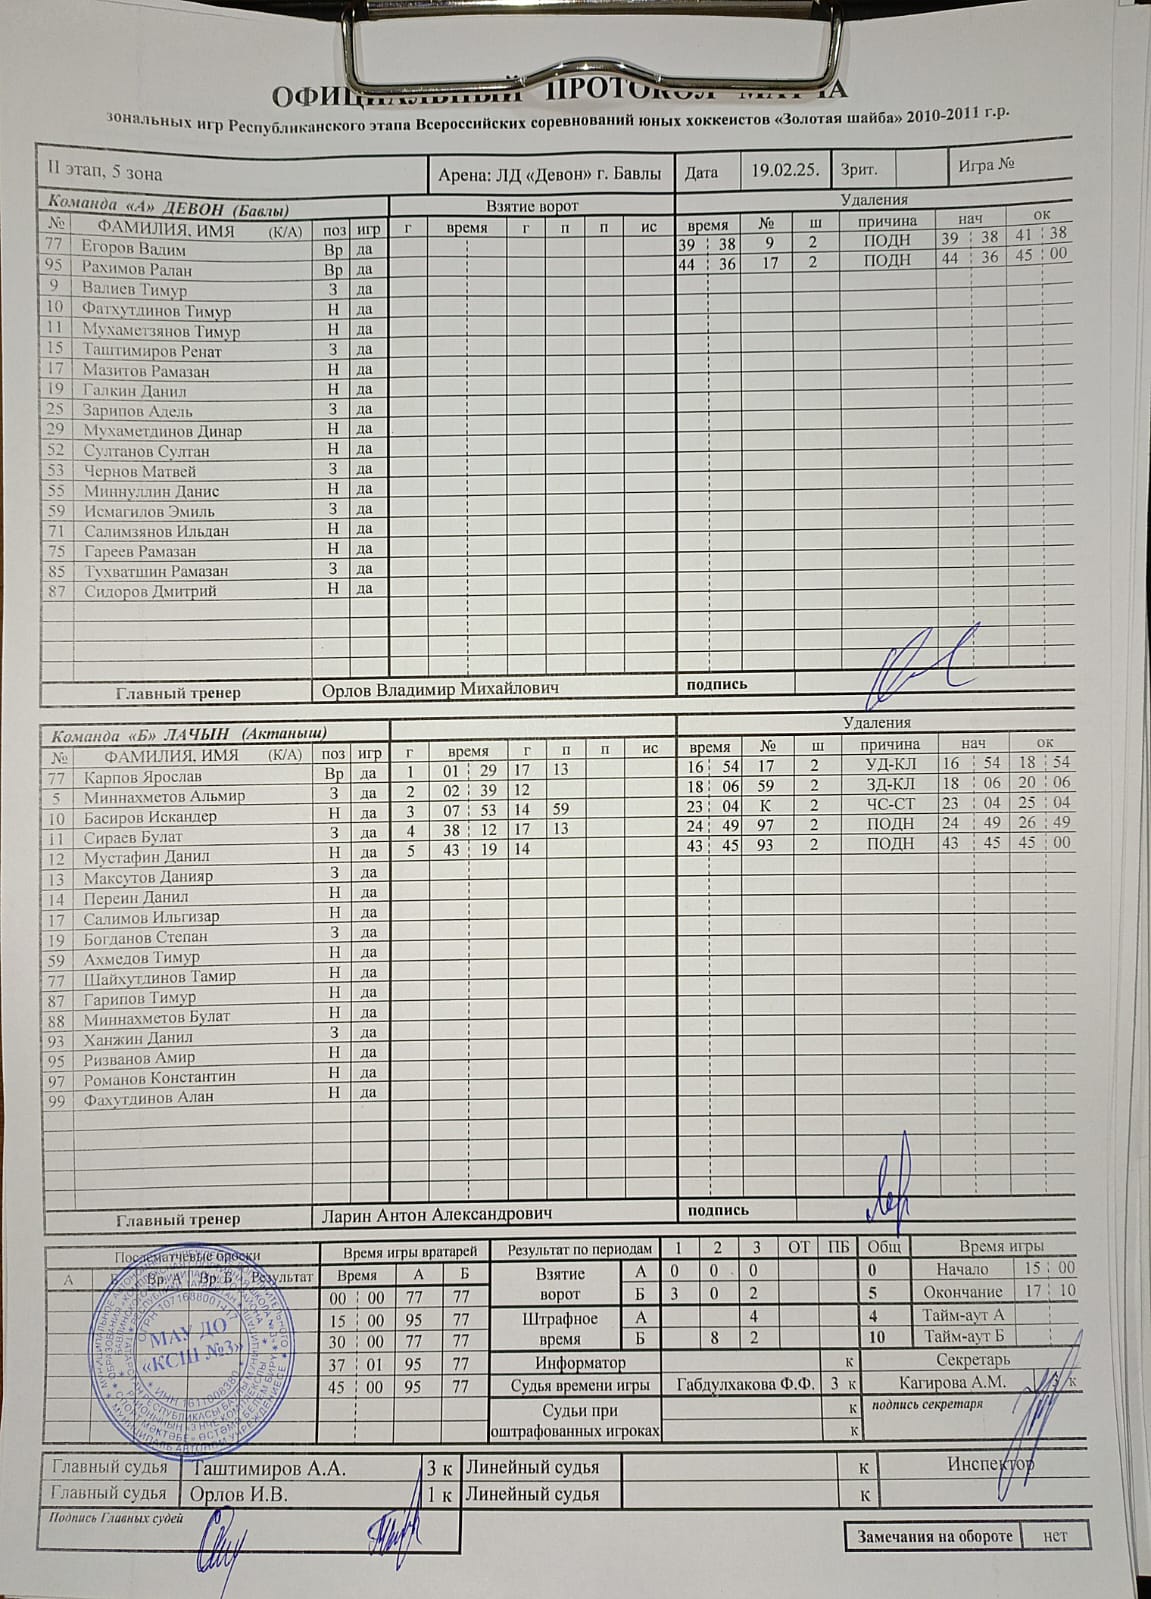 ОФИЦИАЛЬНЫЙ ПРОТОКОЛ МАТЧА
зональных игр Республиканского этапа Всероссийских соревнований юных хоккеистов «Золотая шайба» 2010-2011 г.р.
II этап, 5 зона Арена: ЛД «Девон» г. Бавлы Дата 19.02.25. Зрит. Игра №
Команда «А» ДЕВОН (Бавлы) Взятие ворот Удаления
№ ФАМИЛИЯ, ИМЯ (К/А) поз игр г время г п п ис время № ш причина нач ок
77 Егоров Вадим Вр да 39 38 9 2 ПОДН 39 38 41 38
95 Рахимов Ралан Вр да 44 36 17 2 ПОДН 44 36 45 00
9 Валиев Тимур З да
10 Фатхутдинов Тимур Н да
11 Мухаметзянов Тимур Н да
15 Таштимиров Ренат З да
17 Мазитов Рамазан Н да
19 Галкин Данил Н да
25 Зарипов Адель З да
29 Мухаметдинов Динар Н да
52 Султанов Султан Н да
53 Чернов Матвей З да
55 Миннуллин Данис Н да
59 Исмагилов Эмиль З да
71 Салимзянов Ильдан Н да
75 Гареев Рамазан Н да
85 Тухватшин Рамазан З да
87 Сидоров Дмитрий Н да
Главный тренер Орлов Владимир Михайлович подпись
Команда «Б» ЛАЧЫН (Актаныш) Удаления
№ ФАМИЛИЯ, ИМЯ (К/А) поз игр г время г п п ис время № ш причина нач ок
77 Карпов Ярослав Вр да 1 01 29 17 13 16 54 17 2 УД-КЛ 16 54 18 54
5 Миннахметов Альмир З да 2 02 39 12 18 06 59 2 ЗД-КЛ 18 06 20 06
10 Басиров Искандер Н да 3 07 53 14 59 23 04 К 2 ЧС-СТ 23 04 25 04
11 Сираев Булат З да 4 38 12 17 13 24 49 97 2 ПОДН 24 49 26 49
12 Мустафин Данил Н да 5 43 19 14 43 45 93 2 ПОДН 43 45 45 00
13 Максутов Данияр З да
14 Переин Данил Н да
17 Салимов Ильгизар Н да
19 Богданов Степан З да
59 Ахмедов Тимур Н да
77 Шайхутдинов Тамир Н да
87 Гарипов Тимур Н да
88 Миннахметов Булат Н да
93 Ханжин Данил З да
95 Ризванов Амир Н да
97 Романов Константин Н да
99 Фахутдинов Алан Н да
Главный тренер Ларин Антон Александрович подпись
Послематчевые броски Время игры вратарей Результат по периодам 1 2 3 ОТ ПБ Общ Время игры
А Вр. А Вр. Б Результат Время А Б Взятие ворот А 0 0 0 0 Начало 15 00
00 00 77 77 Б 3 0 2 5 Окончание 17 10
15 00 95 77 Штрафное время А 4 4 Тайм-аут А
30 00 77 77 Б 8 2 10 Тайм-аут Б
37 01 95 77 Информатор к Секретарь
45 00 95 77 Судья времени игры Габдулхакова Ф.Ф. 3 к Кагирова А.М. к
Судьи при оштрафованных игроках к подпись секретаря
к
МАУ ДО
«КСШ №3»
Главный судья Таштимиров А.А. 3 к Линейный судья к Инспектор
Главный судья Орлов И.В. 1 к Линейный судья к
Подпись Главных судей
Замечания на обороте нет